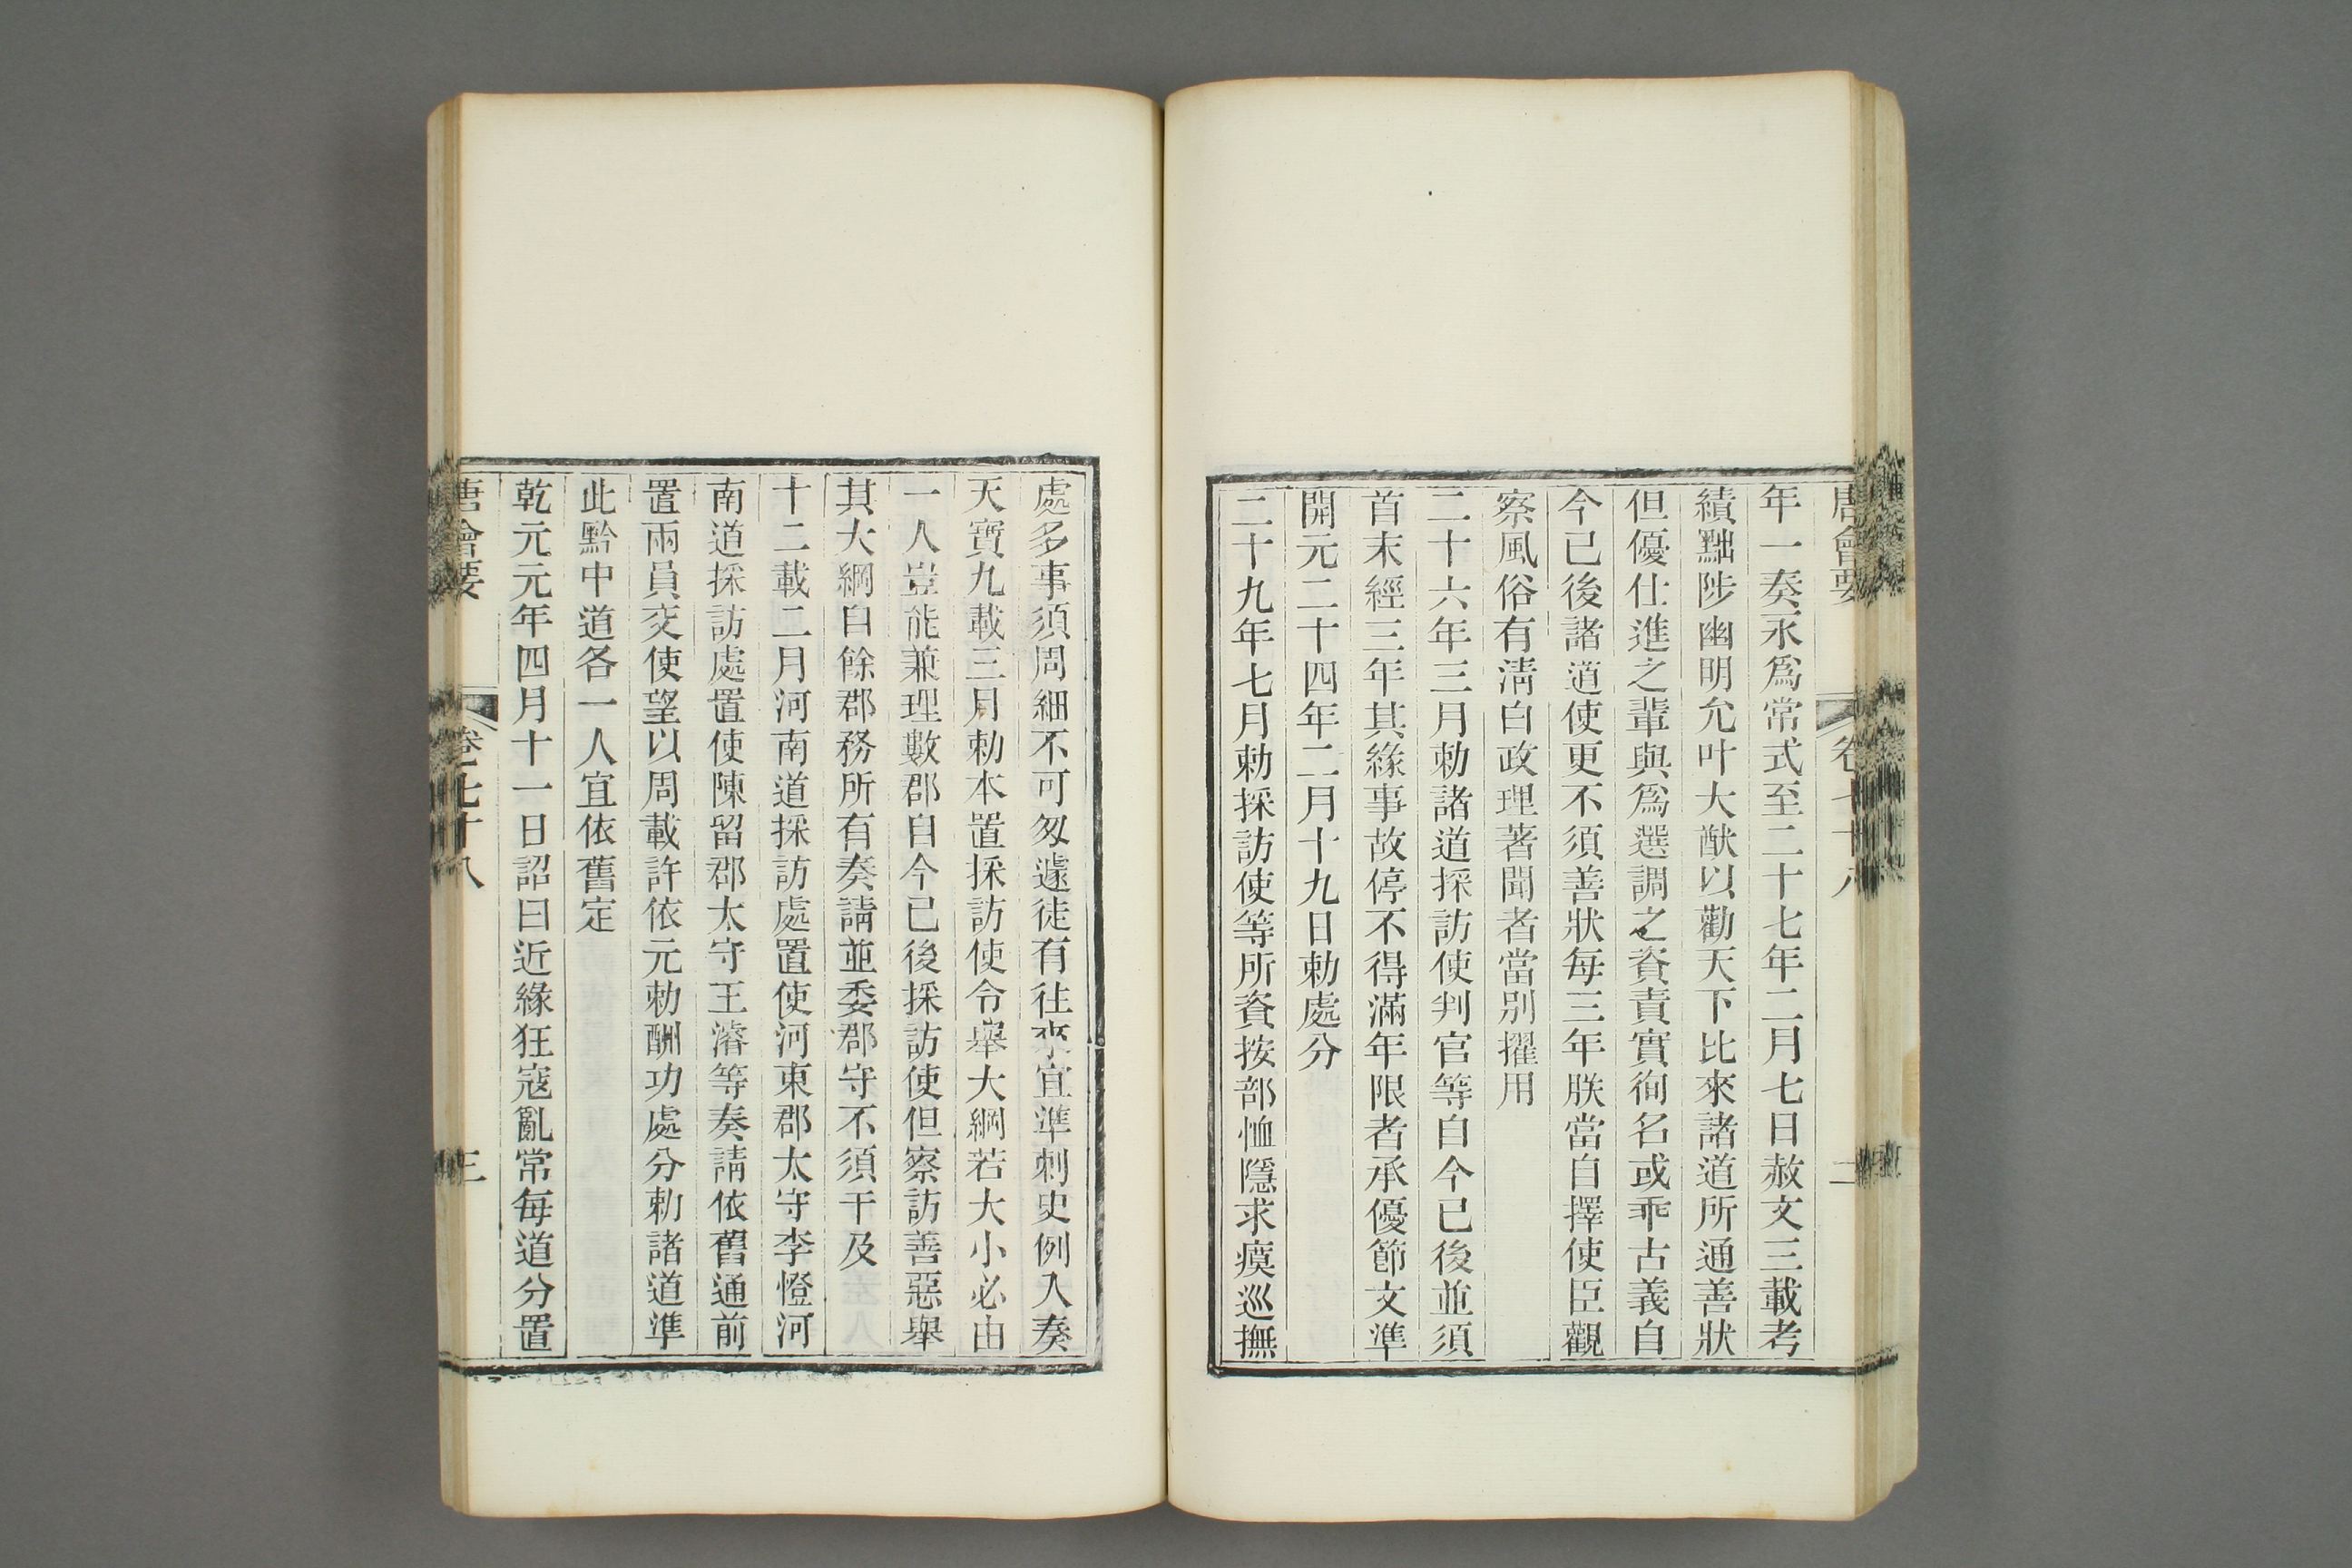 唐會要 卷七十八 二
年一奏永爲常式至二十七年二月七日赦文三載考
績黜陟幽明允叶大猷以勸天下比來諸道所通善狀
但優仕進之輩與爲選調之資責實徇名或乖古義自
今已後諸道使更不須善狀每三年朕當自擇使臣觀
察風俗有淸白政理著聞者當別擢用
二十六年三月勅諸道採訪使判官等自今已後並須
首末經三年其緣事故停不得滿年限者承優節文準
開元二十四年二月十九日勅處分
二十九年七月勅採訪使等所資按部恤隱求瘼巡撫
處多事須周細不可匆遽徒有往來宜準刺史例入奏
天寶九載三月勅本置採訪使令舉大綱若大小必由
一人豈能兼理數郡自今已後採訪使但察訪善惡舉
其大綱自餘郡務所有奏請並委郡守不須干及
十二載二月河南道採訪處置使河東郡太守李憕河
南道採訪處置使陳留郡太守王濬等奏請依舊通前
置兩員交使望以周載許依元勅酬功處分勅諸道準
此黔中道各一人宜依舊定
乾元元年四月十一日詔曰近緣狂寇亂常每道分置
唐會要 卷七十八 三